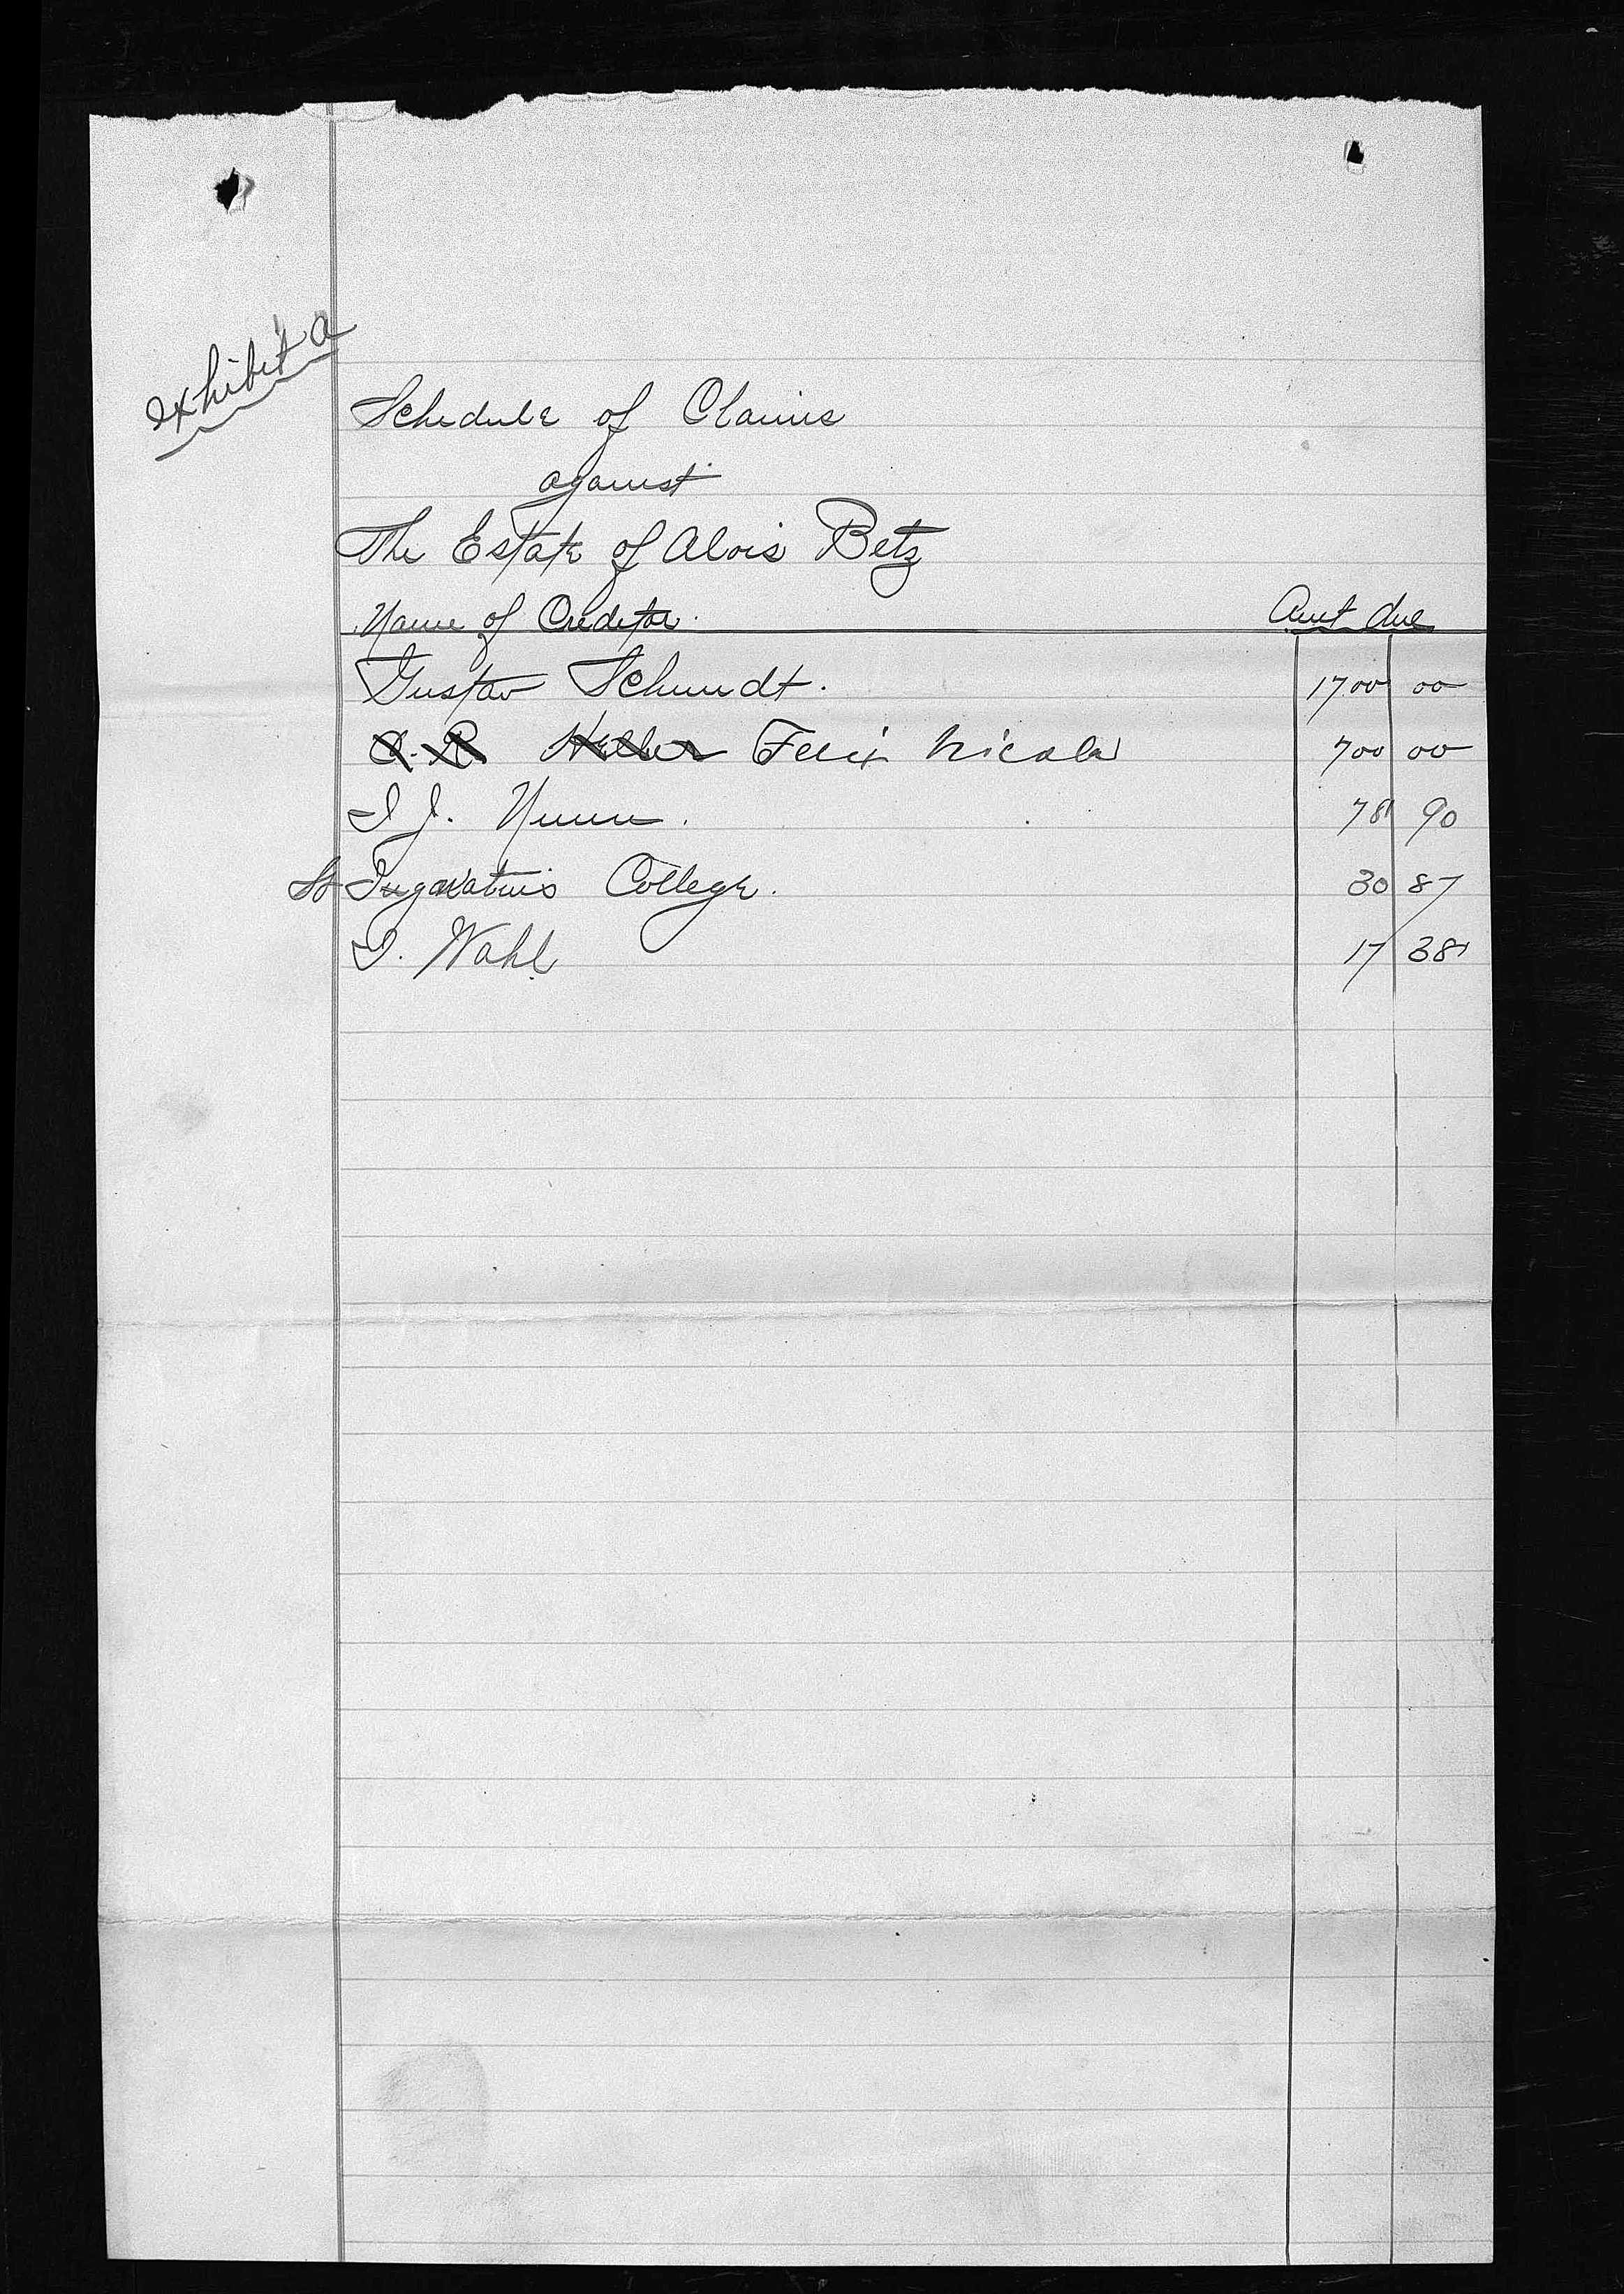 exhibit a
Schedule of Claims
against
The Estate of Alois Betz
Name of Creditor. Amt due
Gustav Schmidt. 1700 00
C. R. Heller Felix Nicola 700 00
I J. Nunn. 78 90
St Ingnatius College. 30 87
I. Wahl. 17 38